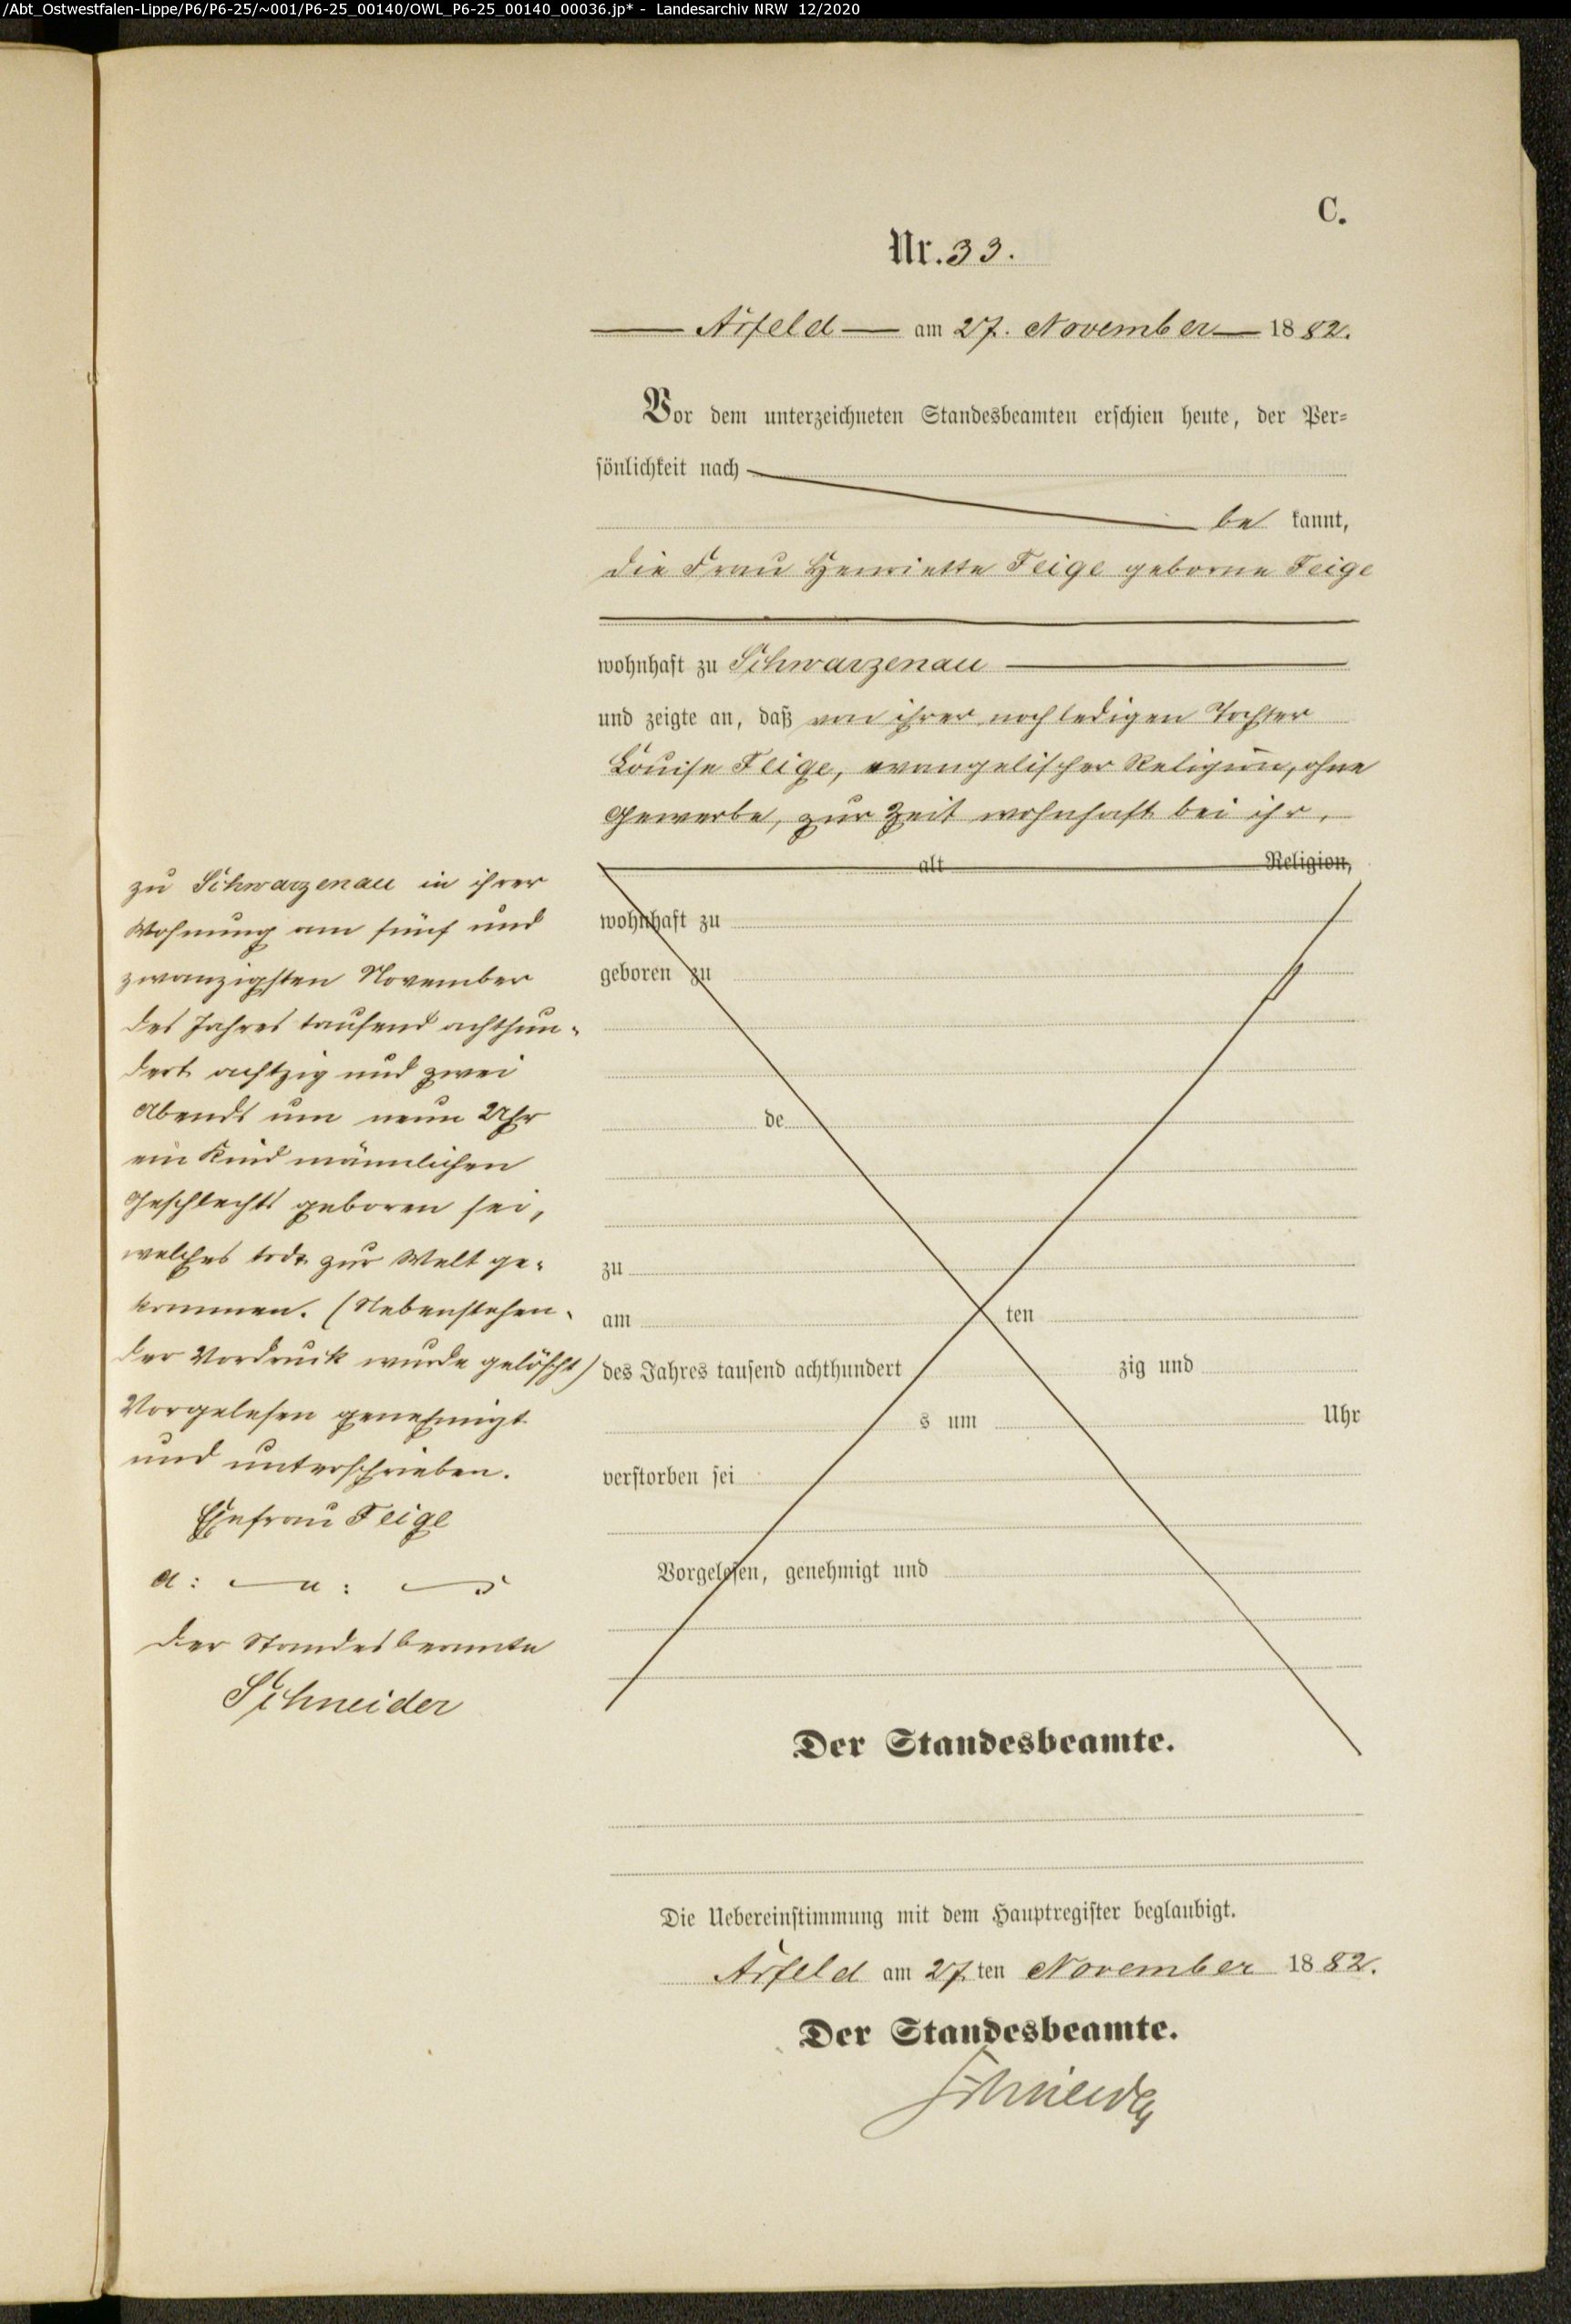 /Abt_Ostwestfalen-Lippe/P6/P6-25/~001/P6-25_00140/OWL_P6-25_00140_00036.jp* - Landesarchiv NRW 12/2020
C.
Nr. 33.
Arfeld am 27. November 1882.
Vor dem unterzeichneten Standesbeamten erschien heute, der Per-
sönlichkeit nach
be kannt,
die Frau Henriette Feige geborne Feige
wohnhaft zu Schwarzenau
und zeigte an, daß von ihrer noch ledigen Tochter
Louise Feige, evangelischer Religion, ohne
Gewerbe, zur Zeit wohnhaft bei ihr,
alt Religion,
wohnhaft zu
geboren zu
de
zu
am ten
des Jahres tausend achthundert zig und
s um Uhr
verstorben sei
Vorgelesen, genehmigt und
zu Schwarzenau in ihrer
Wohnung am fünf und
zwanzigsten November
des Jahres tausend achthun-
dert achtzig und zwei
Abends um neun Uhr
ein Kind männlichen
Geschlechts geboren sei,
welches todt zur Welt ge-
kommen. (Nebenstehen-
der Vordruck wurde gelöscht)
Vorgelesen genehmigt
und unterschrieben.
Ehefrau Feige
Der Standesbeamte
Schneider
Der Standesbeamte.
Die Uebereinstimmung mit dem Hauptregister beglaubigt.
Arfeld am 27ten November 1882.
Der Standesbeamte.
Schneider